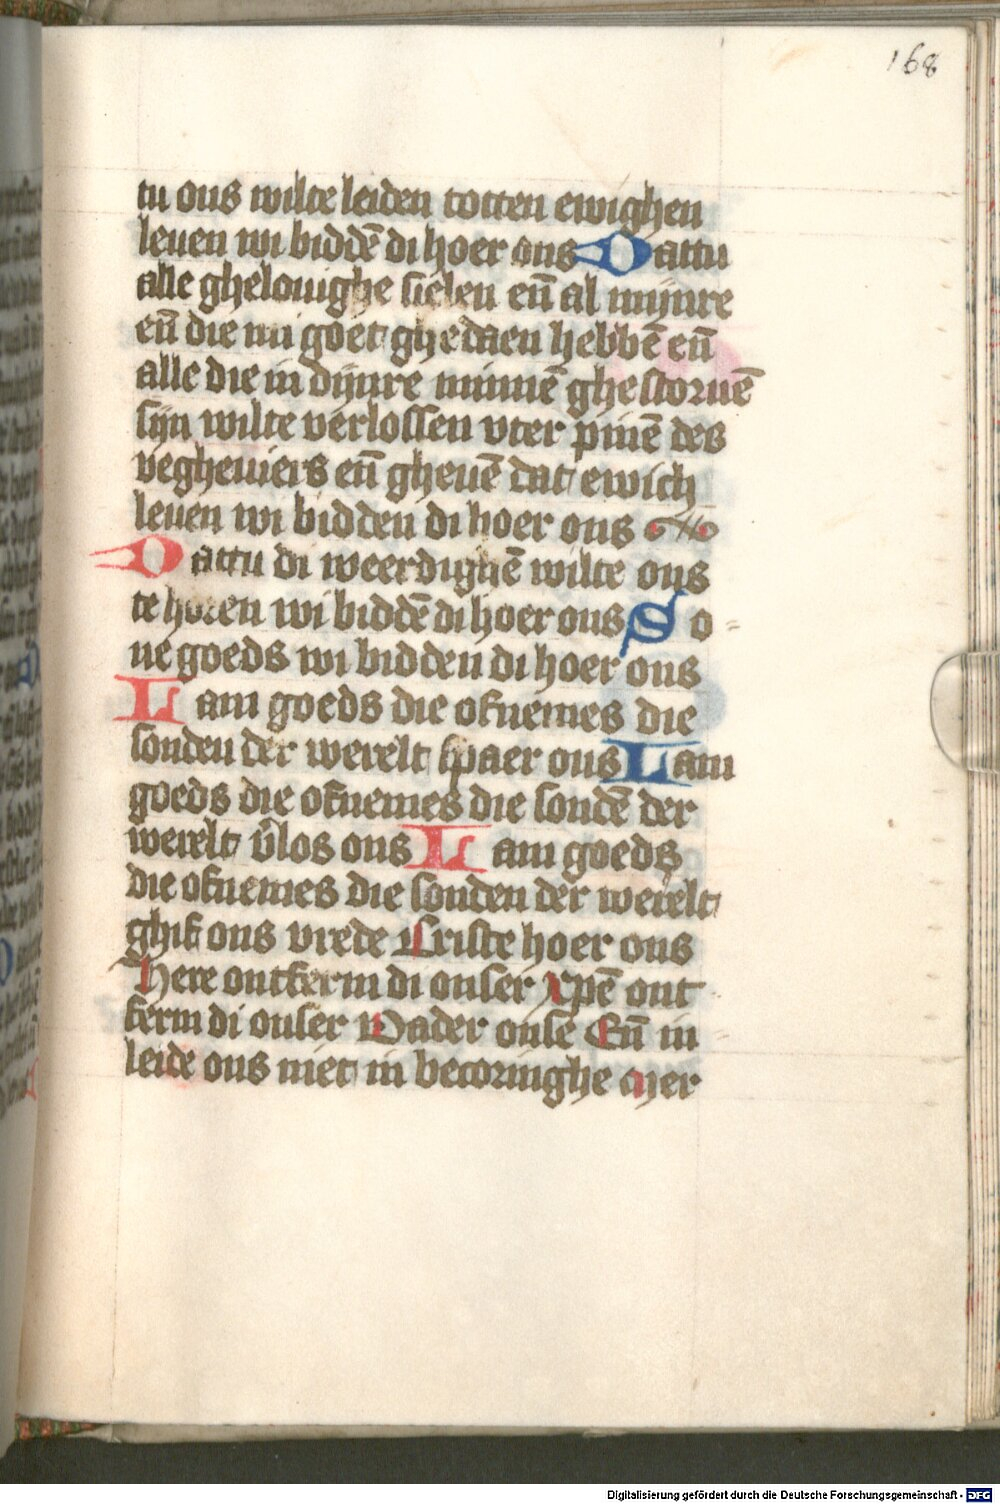 168
tu ons wilte leiden totten ewighen
leuen wi biddē di hoer ons Dattu
alle ghelouighe sielen eñ al mijnre
eñ die mi goet ghedaen hebbē eñ
alle die in dijnre minnē ghestoruē
sijn wilte verlossen vter pinē des
veghevuers eñ gheuē dat ewich
leuen wi bidden di hoer ons
Dattu di weerdighē wilte ons
te horen wi biddē di hoer ons So
ne goeds wi bidden di hoer ons
Lam goeds die ofnemes die
sonden der werelt spaer ons Lam
goeds die ofnemes die sondē der
werelt v̄los ons Lam goeds
die ofnemes die sonden der werelt
ghif ons vrede Criste hoer ons
Here ontferm di onser xpē ont
ferm di onser Vader onse Eñ in
leide ons niet in becoringhe
Digitalisierung gefördert durch die Deutsche Forschungsgemeinschaft - DFG